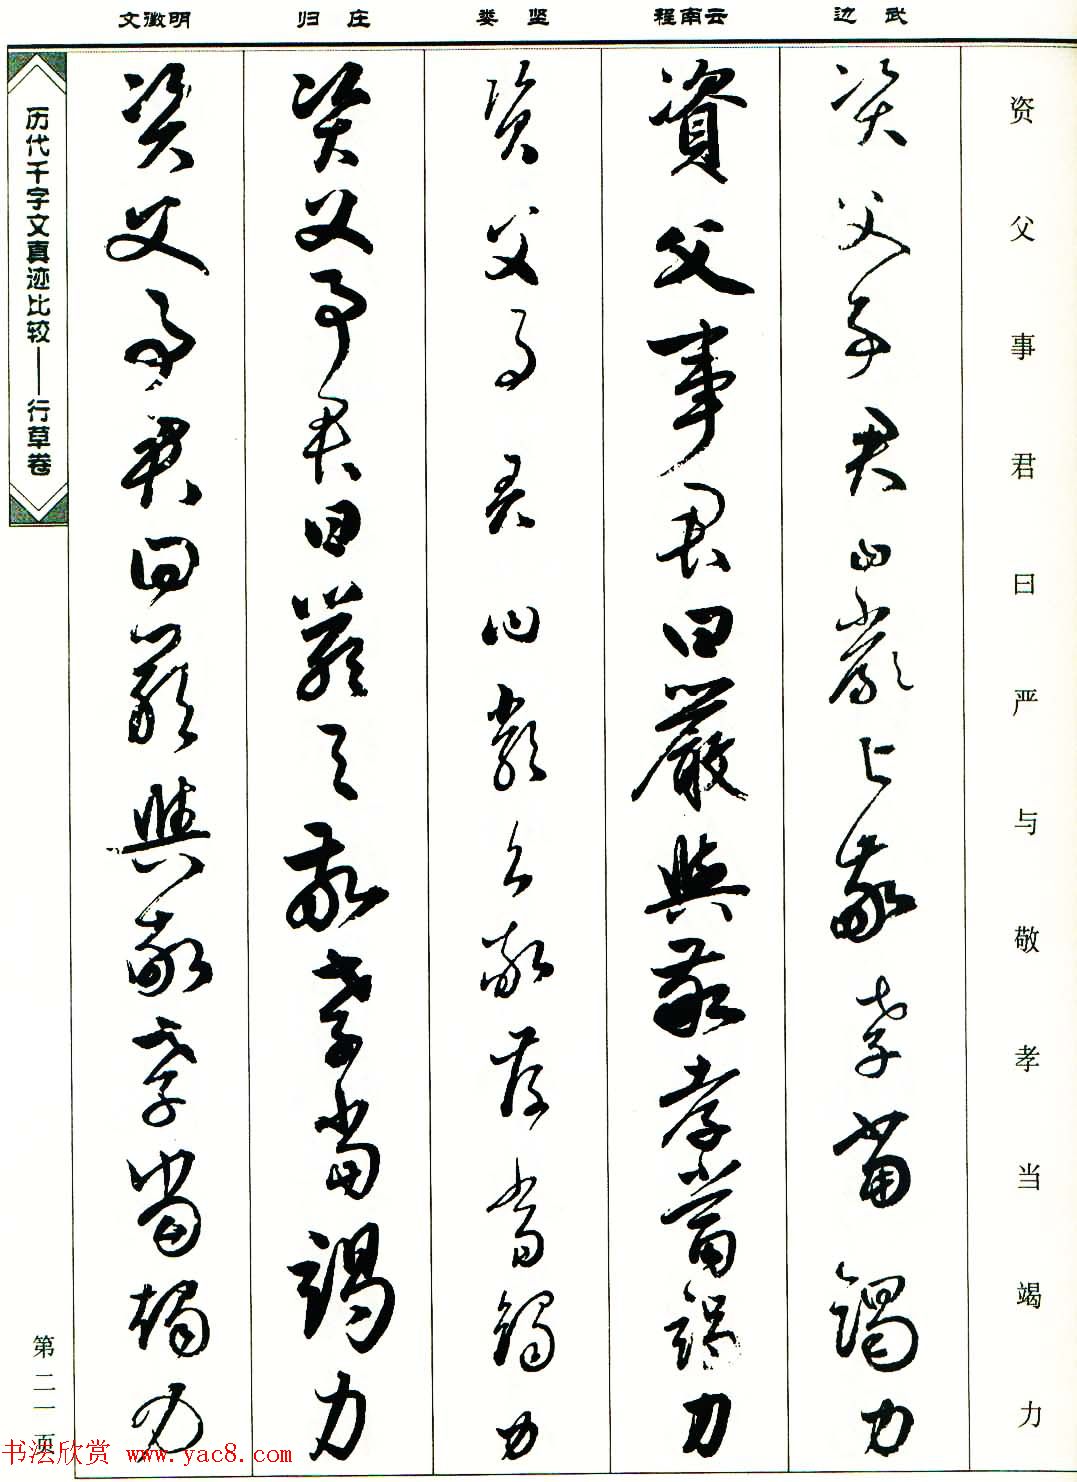 文徵明 归庄 娄坚 程南云 边武
资父事君曰严与敬孝当竭力
資父事君曰嚴與敬孝當竭力
資父事君曰嚴與敬孝當竭力
資父事君曰嚴與敬孝當竭力
資父事君曰嚴與敬孝當竭力
資父事君曰嚴與敬孝當竭力
历代千字文真迹比较——行草卷
第二一页
书法欣赏 www.yac8.com